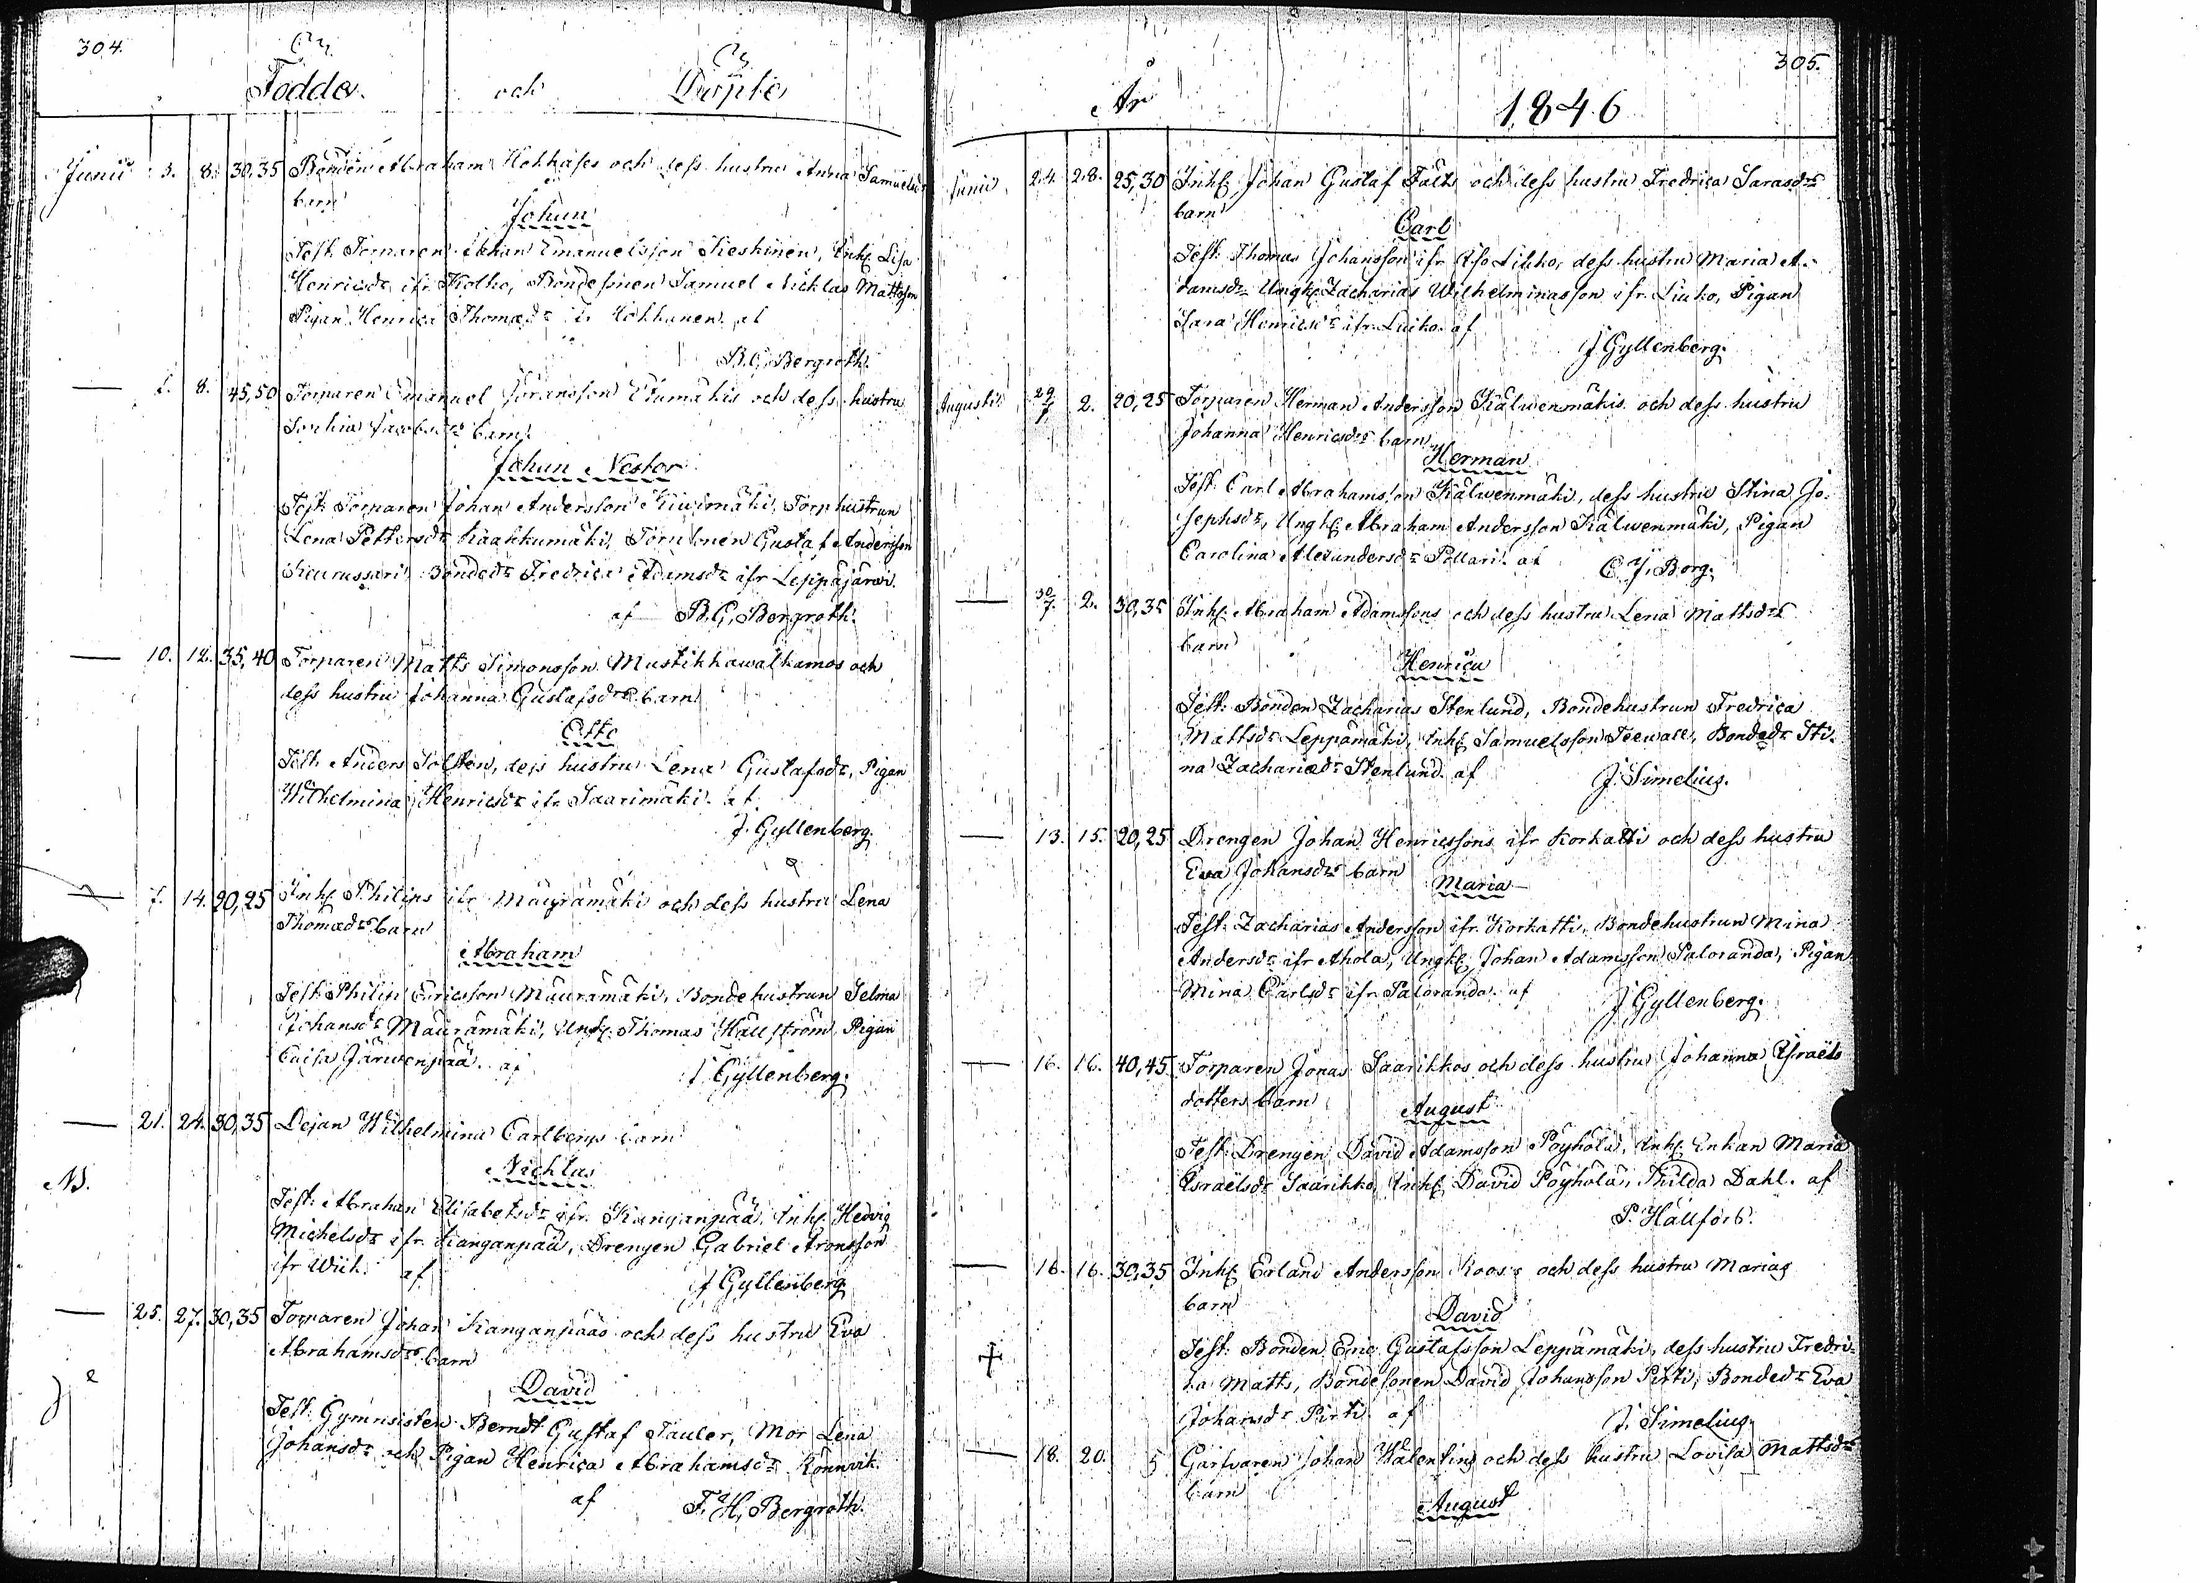 304.
Födde och Döpte
Junii 3. 8. 30,35 Bonden Abraham Hokkases och dess hustru Anna Samuelsdrs
barn
Johan
Test. Torparen Johan Emanuelsson Keskinen, Inh. Lisa
Henricsdr ifr. Kotko, Bondesonen Samuel Nicklas Mattsson
Pigan Henrica Thomædr ifr Hokkanen. af
B. G. Bergroth.
— 8. 45,50 Torparen Emanuel Göransson och dess hustru
Sophia Jacobsdrs barn.
Johan Nestor
Test. Torparen Johan Andersson Kiwimäki, Torphustrun
Lena Pettersdr Kaakkumäki, Gustaf Andersson
Bondedr Fredrica Adamsdr ifr Leppäjärwi.
af B. G. Bergroth.
— 10. 12. 35,40 Torparen Matts Simonsson Mustikkawalkamas och
dess hustru Johanna Gustafsdrs barn
Otto
Test. Anders dess hustru Lena Gustafsdr, Pigan
Wilhelmina Henricsdr ifr Saarimäki. af
J. Gyllenberg.
— 7. 14. 20,25 Inh. Philips ifr Mäyrämäki och dess hustru Lena
Thomædrs barn
Abraham
Test. Philip Ericsson Mäurämäki, Bondehustrun Selma
Johansdr Mäurämäki, Ungk. Thomas Hällström, Pigan
Caisa Järwenpää. af
J. Gyllenberg.
— 21. 24. 30,35 Lejan Wilhelmina Carlbergs barn
Nicklas
NB.
Test. Abraham Elisabetsdr ifr. Kanganpää, Inh. Hedvig
Michelsdr ifr. Kanganpää, Drengen Gabriel Aronsson
ifr Wiik. af
J Gyllenberg
— 25. 27. 30,35 Torparen Johan Kanganpääs och dess hustru Eva
Abrahamsdrs barn
David
Test. Gymnisisten Berndt Gustaf Tauler, Mor Lena
Johansdr och Pigan Henrica Abrahamsdr Könnvik.
af F. H. Bergroth.
305.
År 1846
Junii 24. 28. 25,30 Inh. Johan Gustaf Fälts och dess hustru Fredrica Sarasdrs
barn
Carl
Test. Thomas Johansson ifr dess hustru Maria A-
damsdr Ungk. Zacharias Wilhelminasson ifr. Luko, Pigan
Sara Henricsdr ifr. af
J Gyllenberg.
Augusti 29/7. 2. 20,25 Torparen Herman Andersson Kälwenmäkis och dess hustru
Johanna Henricsdrs barn
Herman
Test. Carl Abrahamsson Kälwenmäki, dess hustru Stina Jo-
sephsdr, Ungk. Abraham Andersson Kälwenmäki, Pigan
Carolina Alexandersdr Pollari. af
C. J. Borg.
— 30/7. 2. 30,35 Inh. Abraham Adamssons och dess hustru Lena Mattsdrs
barn
Henrica
Test. Bonden Zacharias Stenlund, Bondehustrun Fredrica
Mattsdr Leppämäki, Inh. Samuelsson Teewall, Bondedr Sti-
na Zachariædr Stenlund. af
J. Simelius.
— 13. 15. 20,25 Drengen Johan Henricssons ifr Korkatti och dess hustru
Eva Johansdrs barn
Maria
Test. Zacharias Andersson ifr. Korkatti, Bondehustrun Mina
Andersdr ifr Ahola, Ungk. Johan Adamsson Saloranda, Pigan
Mina Carlsdr ifr Saloranda. af
J Gyllenberg.
— 16. 16. 40,45 Torparen Jonas Saarikkos och dess hustru Johanna Israels
dotters barn
August
Test. Drengen David Adamsson Pöyhölä, Inh. Enkan Maria
Israelsdr Saarikko, Inh. David Pöyhölä, Thilda Dahl. af
P. Hällfors.
— 16. 16. 30,35 Inh. Erland Andersson Koos's och dess hustru Marias
barn
David
Test. Bonden Eric Gustafsson Leppämäki, dess hustru Fredri-
ka Matts, Bondesonen David Johansson Pirti, Bondedr Eva
Johansdr Pirti af
J. Simelius.
— 18. 20. 5 Garfvaren Johan Walentins och dess hustru Lovisa Mattsdrs
barn
August